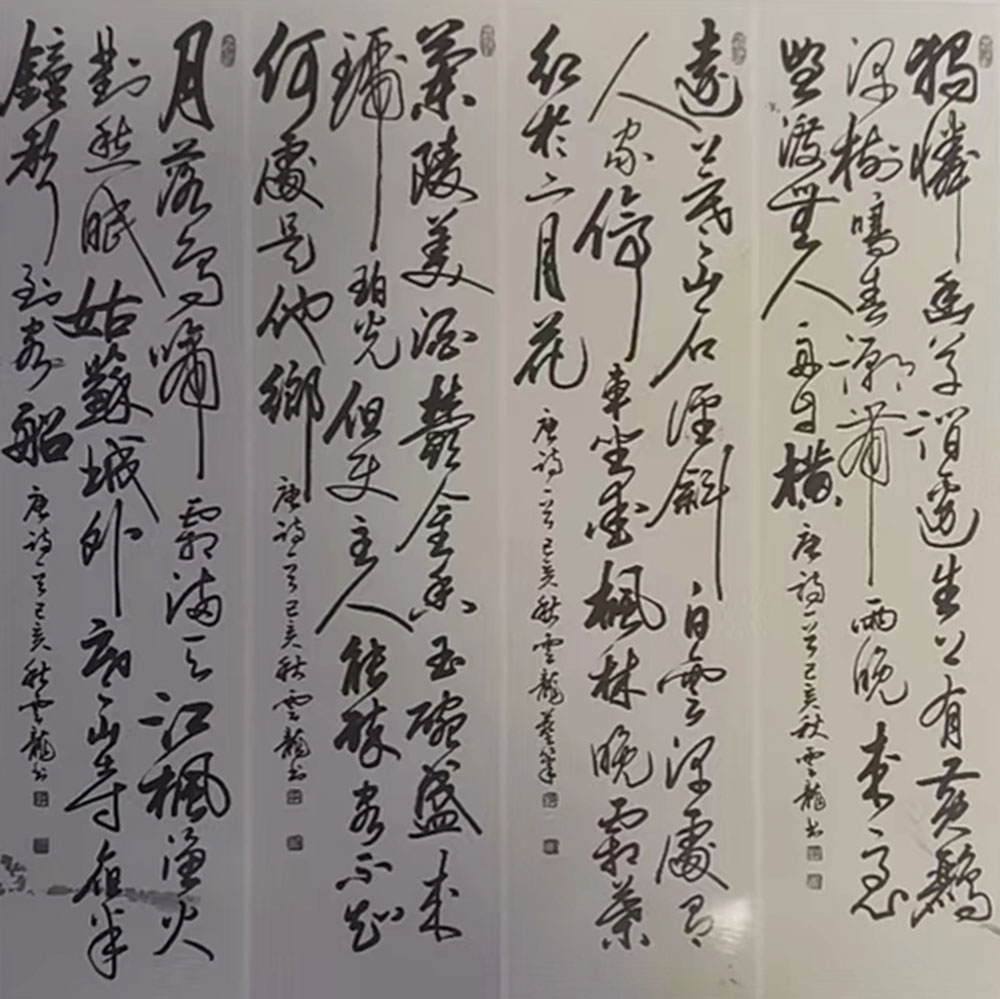 獨憐幽草澗邊生上有黃鸝
深樹鳴春潮帶雨晚來急
野渡無人舟自橫 唐詩一首己亥秋雲龍書
遠上寒山石徑斜白雲深處有
人家停車坐愛楓林晚霜葉
紅於二月花 唐詩一首己亥秋雲龍
蘭陵美酒鬱金香玉碗盛來
琥珀光但使主人能醉客不知
何處是他鄉 唐詩一首己亥秋雲龍書
月落烏啼霜滿天江楓漁火
對愁眠姑蘇城外寒山寺夜半
鐘聲到客船 唐詩一首己亥秋雲龍書